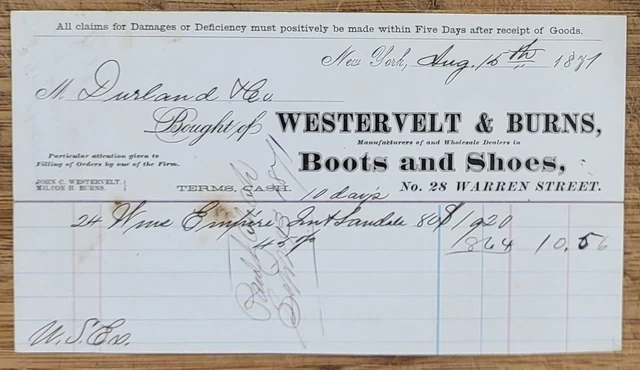 All claims for Damages or Deficiency must positively be made within Five Days after receipt of Goods.
New York, Aug. 15th 1871
M. Durland & Co
Bought of WESTERVELT & BURNS,
Manufacturers of and Wholesale Dealers in
Boots and Shoes,
Particular attention given to
Filling of Orders by one of the Firm.
JOHN C. WESTERVELT.
MILTON H. BURNS.
TERMS, CASH. 10 days
No. 28 WARREN STREET.
24 Wms Empire Sandals 80 $1920
45% 864 10.56